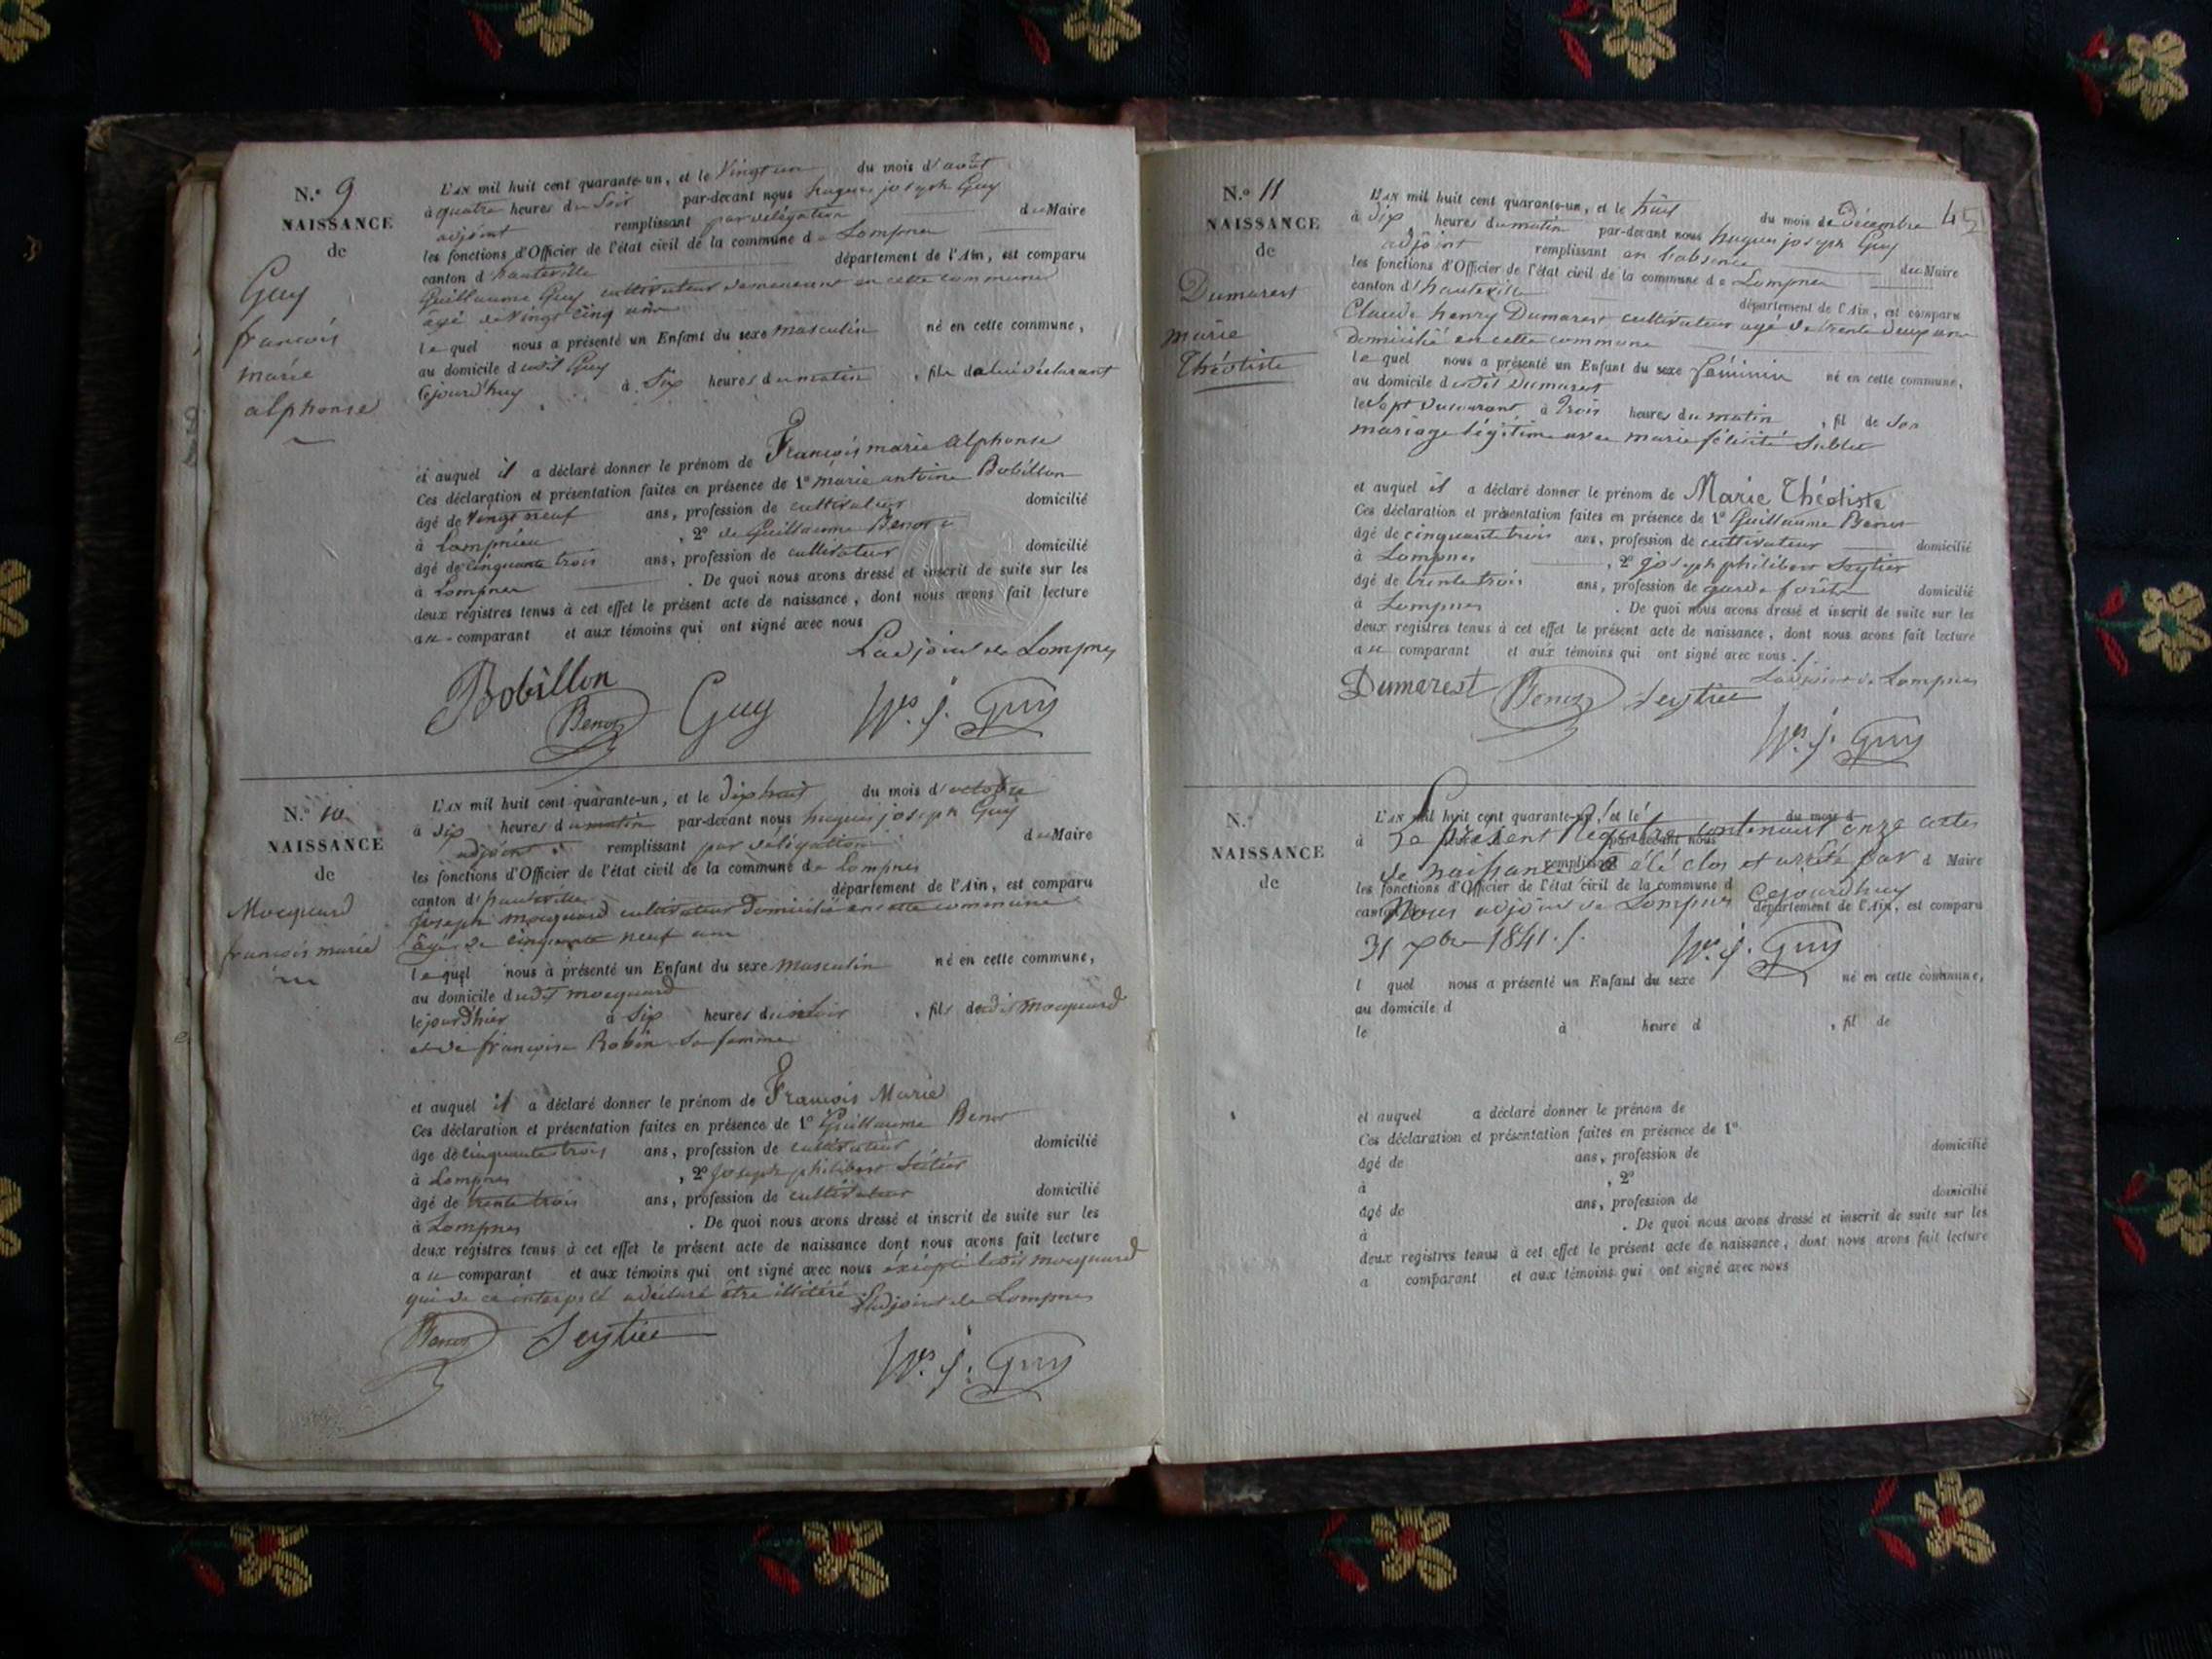 N.° 9
NAISSANCE
de
Guy
françois
marie
alphonse
L'AN mil huit cent quarante-un, et le Vingt un du mois d'août
à quatre heures du Soir par-devant nous hugues joseph Guy
adjoint remplissant par délégation du Maire
les fonctions d'Officier de l'état civil de la commune de Lompnes
canton d'hauteville département de l'Ain, est comparu
Guillaume Guy cultivateur demeurant en cette commune
âgé de Vingt cinq ans
lequel nous a présenté un Enfant du sexe masculin né en cette commune,
au domicile dudit Guy
cejourd'huy à Six heures du matin, fils de lui déclarant
et auquel il a déclaré donner le prénom de François marie alphonse
Ces déclaration et présentation faites en présence de 1° marie antoine Bobillon
âgé de Vingt neuf ans, profession de cultivateur domicilié
à Lompnieu, 2° de Guillaume Benoz
âgé de cinquante trois ans, profession de cultivateur domicilié
à Lompnes. De quoi nous avons dressé et inscrit de suite sur les
deux registres tenus à cet effet le présent acte de naissance, dont nous avons fait lecture
au comparant et aux témoins qui ont signé avec nous
L'adjoint de Lompnes
Bobillon Benoz Guy Hes. J. Guy
N.° 10
NAISSANCE
de
Mocquard
françois marie
L'AN mil huit cent quarante-un, et le dix huit du mois d'octobre
à dix heures du matin par-devant nous hugues joseph Guy
adjoint remplissant par délégation du Maire
les fonctions d'Officier de l'état civil de la commune de Lompnes
canton d'hauteville département de l'Ain, est comparu
Joseph mocquard cultivateur Domicilié en cette commune
âgé de cinquante neuf ans
lequel nous a présenté un Enfant du sexe masculin né en cette commune,
au domicile dudit mocquard
le jourd'hier à Six heures du soir, fils dudit mocquard
et de françoise Robin Sa femme
et auquel il a déclaré donner le prénom de François Marie
Ces déclaration et présentation faites en présence de 1° Guillaume Benoz
âgé de cinquante trois ans, profession de cultivateur domicilié
à Lompnes, 2° Joseph philibert
âgé de trente trois ans, profession de cultivateur domicilié
à Lompnes. De quoi nous avons dressé et inscrit de suite sur les
deux registres tenus à cet effet le présent acte de naissance dont nous avons fait lecture
au comparant et aux témoins qui ont signé avec nous excepté ledit mocquard
qui de ce interpelé a déclaré être illitéré. L'adjoint de Lompnes
Benoz Seytier Hes. J. Guy
45
N.° 11
NAISSANCE
de
Dumarest
marie
Théotiste
L'AN mil huit cent quarante-un, et le huit du mois de Décembre
à dix heures du matin par-devant nous hugues joseph Guy
adjoint remplissant en l'absence du Maire
les fonctions d'Officier de l'état civil de la commune de Lompnes
canton d'hauteville département de l'Ain, est comparu
Claude henry Dumarest cultivateur agé de trente deux ans
Domicilié en cette commune
lequel nous a présenté un Enfant du sexe féminin né en cette commune,
au domicile dudit Dumarest
le Sept du courant à trois heures du matin, fil de Son
mariage légitime avec marie félicité
et auquel il a déclaré donner le prénom de Marie Théotiste
Ces déclaration et présentation faites en présence de 1° Guillaume Benoz
âgé de cinquante trois ans, profession de cultivateur domicilié
à Lompnes, 2° Joseph philibert Seytier
âgé de trente trois ans, profession de garde forêts domicilié
à Lompnes. De quoi nous avons dressé et inscrit de suite sur les
deux registres tenus à cet effet le présent acte de naissance, dont nous avons fait lecture
au comparant et aux témoins qui ont signé avec nous./.
L'adjoint de Lompnes
Dumarest Benoz Seytier
Hes. J. Guy
N.°
NAISSANCE
de
L'AN mil huit cent quarante-un, et le du mois d
Le présent Registre contenant onze actes
à heure d par-devant nous
de naissances a été clos et arrêté par
remplissant d Maire
les fonctions d'Officier de l'état civil de la commune d
Nous adjoint de Lompnes Cejourd'huy
canton d département de l'Ain, est comparu
31 xbre 1841./. Hes. J. Guy
l quel nous a présenté un Enfant du sexe né en cette commune,
au domicile d
le à heure d, fil de
et auquel a déclaré donner le prénom de
Ces déclaration et présentation faites en présence de 1°
âgé de ans, profession de domicilié
à, 2°
âgé de ans, profession de domicilié
à. De quoi nous avons dressé et inscrit de suite sur les
deux registres tenus à cet effet le présent acte de naissance, dont nous avons fait lecture
a comparant et aux témoins qui ont signé avec nous